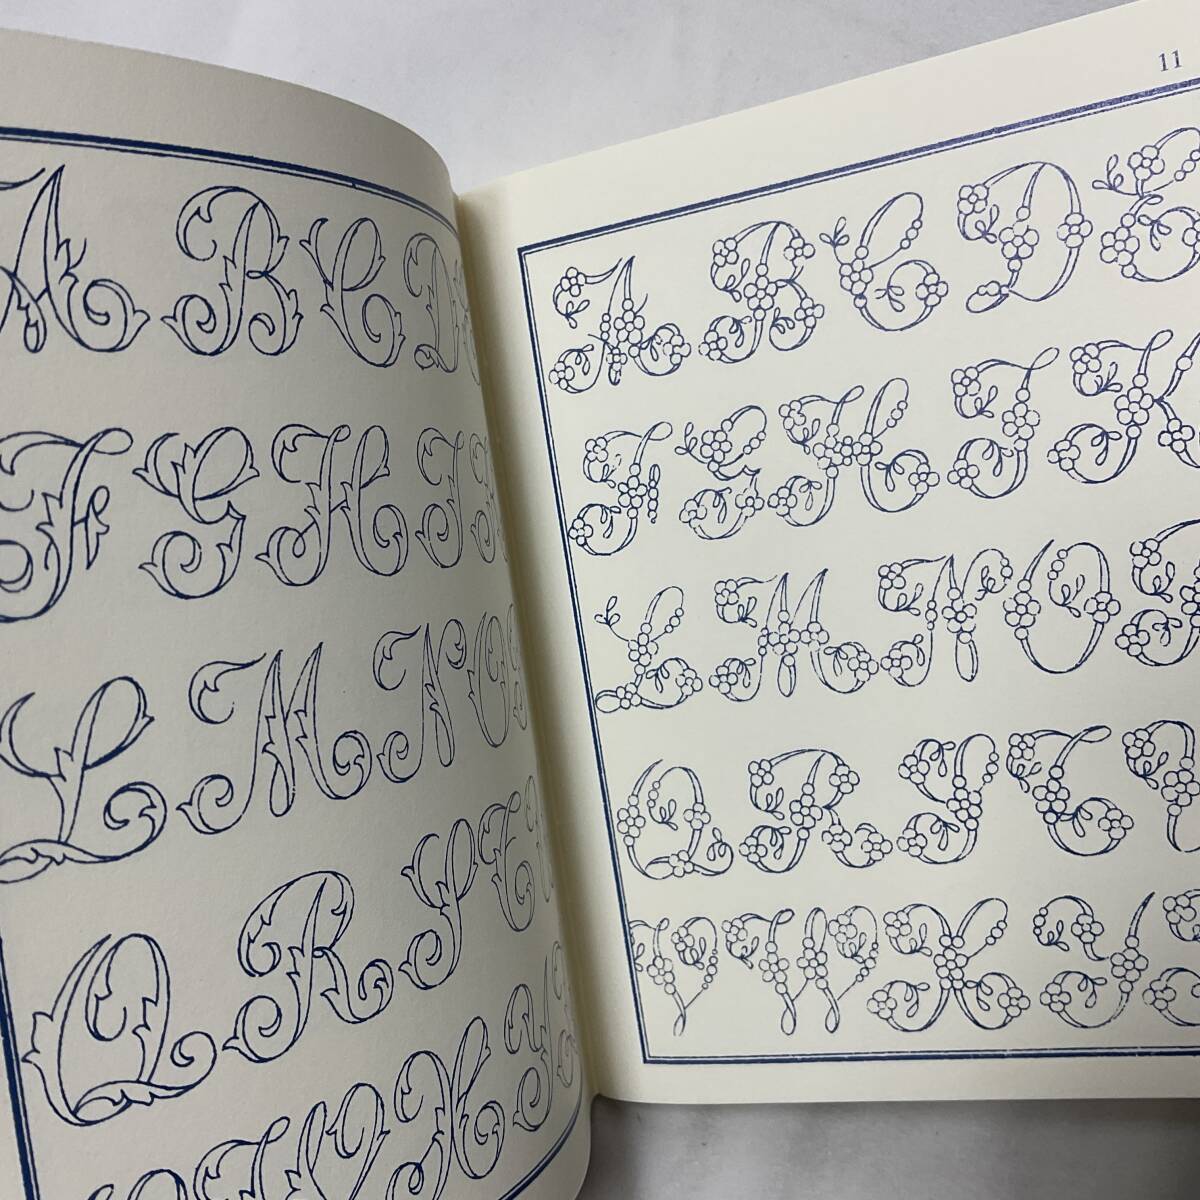 A B C D
F G H I
L M N O
Q R S T
V W X Y
11
A B C D E
F G H I K
L M N O P
Q R S T U
V W X Y